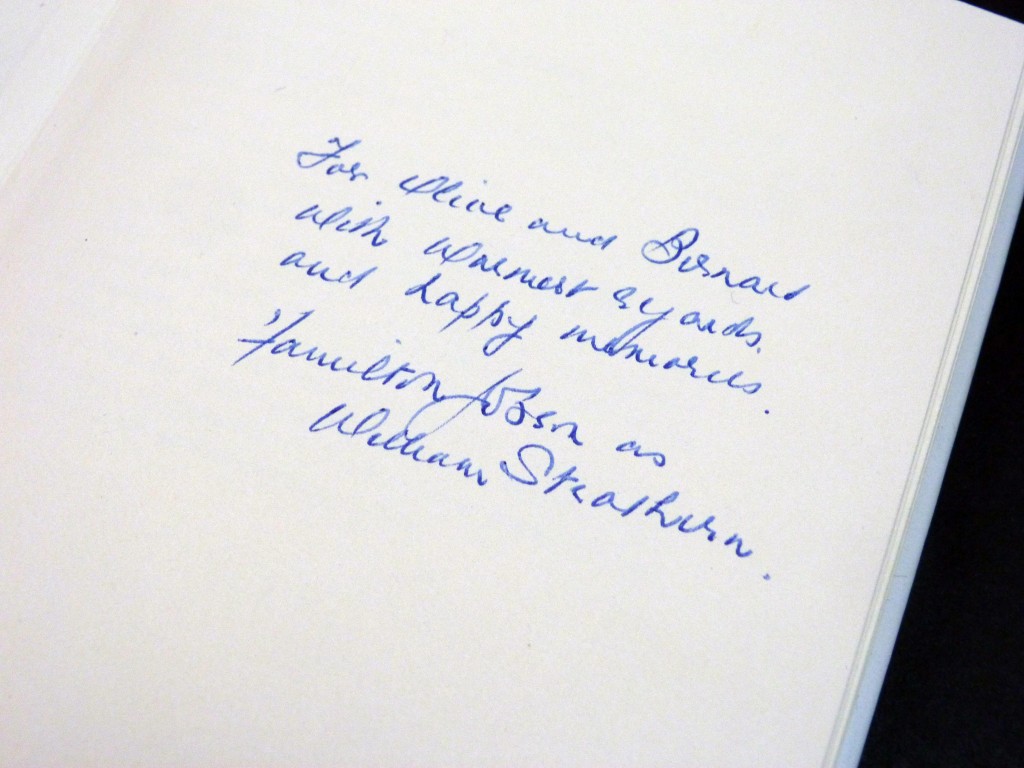 For Olive and Bernard
with warmest regards.
and happy memories.
Hamilton Jobson as
William Strathern.